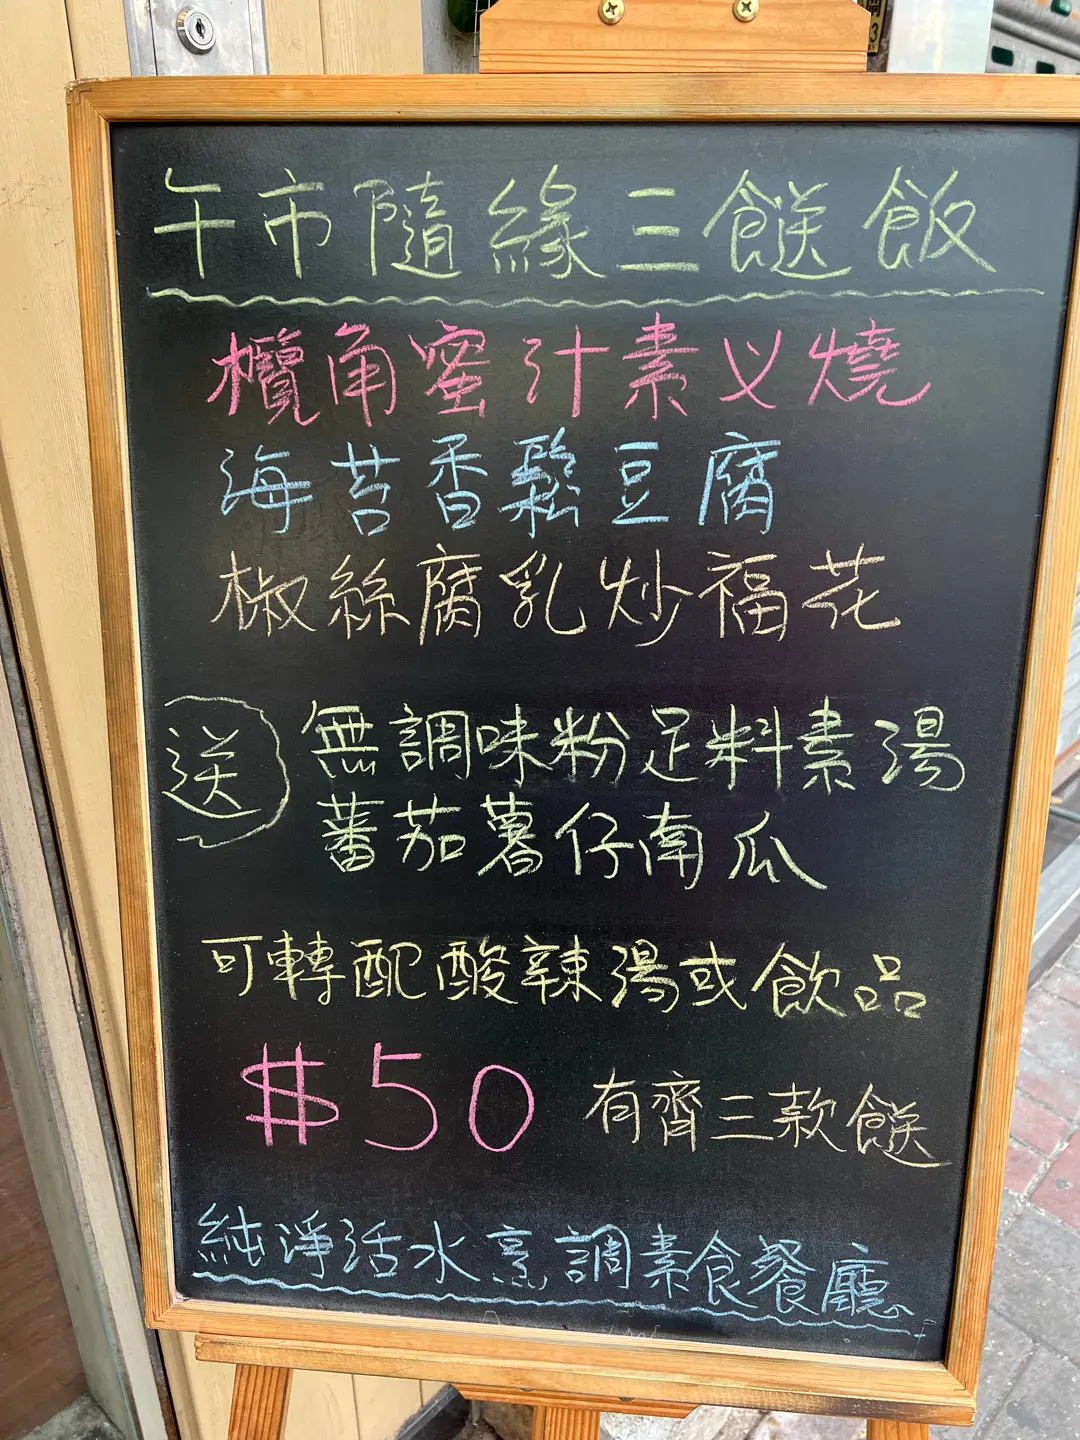 午市隨緣三餸飯
欖角蜜汁素叉燒
海苔香鬆豆腐
椒絲腐乳炒福花
送 無調味粉足料素湯
蕃茄薯仔南瓜
可轉配酸辣湯或飲品
$50 有齊三款餸
純淨活水烹調素食餐廳